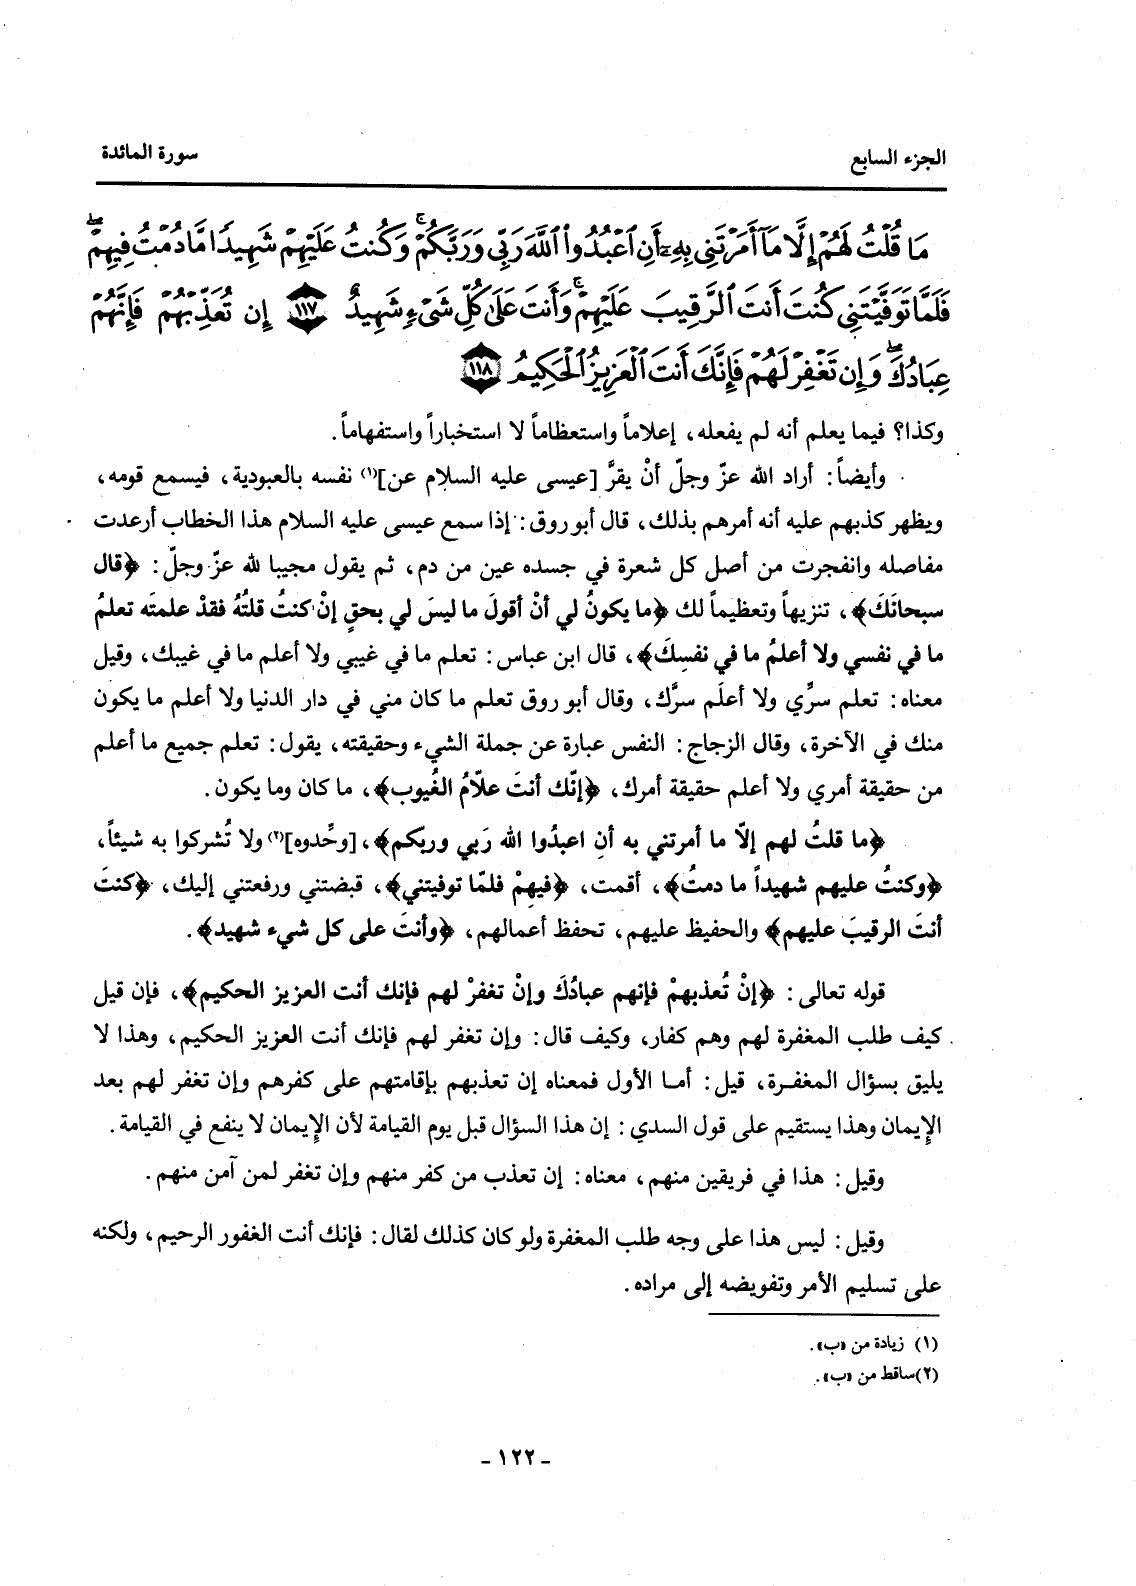 الجزء السابع
سورة المائدة
مَا قُلْتُ لَهُمْ إِلَّا مَآ أَمَرْتَنِى بِهِۦٓ أَنِ ٱعْبُدُوا۟ ٱللَّهَ رَبِّى وَرَبَّكُمْ ۚ وَكُنتُ عَلَيْهِمْ شَهِيدًا مَّا دُمْتُ فِيهِمْ ۖ
فَلَمَّا تَوَفَّيْتَنِى كُنتَ أَنتَ ٱلرَّقِيبَ عَلَيْهِمْ ۚ وَأَنتَ عَلَىٰ كُلِّ شَىْءٍ شَهِيدٌ ١١٧ إِن تُعَذِّبْهُمْ فَإِنَّهُمْ
عِبَادُكَ ۖ وَإِن تَغْفِرْ لَهُمْ فَإِنَّكَ أَنتَ ٱلْعَزِيزُ ٱلْحَكِيمُ ١١٨
وكذا؟ فيما يعلم أنه لم يفعله، إعلاماً واستعظاماً لا استخباراً واستفهاماً.
وأيضاً: أراد الله عزّ وجلّ أنْ يقرَّ [عيسى عليه السلام عن](١) نفسه بالعبودية، فيسمع قومه،
ويظهر كذبهم عليه أنه أمرهم بذلك، قال أبو روق: إذا سمع عيسى عليه السلام هذا الخطاب أرعدت
مفاصله وانفجرت من أصل كل شعرة في جسده عين من دم، ثم يقول مجيبا لله عزّ وجلّ: ﴿قال
سبحانَكَ﴾، تنزيهاً وتعظيماً لك ﴿ما يكونُ لي أنْ أقولَ ما ليسَ لي بحقٍ إنْ كنتُ قلتُهُ فقدْ علمتَه تعلمُ
ما في نفسي ولا أعلمُ ما في نفسِكَ﴾، قال ابن عباس: تعلم ما في غيبي ولا أعلم ما في غيبك، وقيل
معناه: تعلم سرِّي ولا أعلَم سرَّك، وقال أبو روق تعلم ما كان مني في دار الدنيا ولا أعلم ما يكون
منك في الآخرة، وقال الزجاج: النفس عبارة عن جملة الشيء وحقيقته، يقول: تعلم جميع ما أعلم
من حقيقة أمري ولا أعلم حقيقة أمرك، ﴿إنّك أنتَ علّامُ الغُيوب﴾، ما كان وما يكون.
﴿ما قلتُ لهم إلاّ ما أمرتني به أنِ اعبدُوا الله رَبي وربكم﴾، [وحِّدوه](٢) ولا تُشركوا به شيئاً،
﴿وكنتُ عليهم شهيداً ما دمتُ﴾، أقمت، ﴿فيهِمْ فلمّا توفيتني﴾، قبضتني ورفعتني إليك، ﴿كنتَ
أنتَ الرقيبَ عليهم﴾ والحفيظ عليهم، تحفظ أعمالهم، ﴿وأنتَ على كل شيء شهيد﴾.
قوله تعالى: ﴿إنْ تُعذبهمْ فإنهم عبادُكَ وإنْ تغفرْ لهم فإنك أنت العزيز الحكيم﴾، فإن قيل
كيف طلب المغفرة لهم وهم كفار، وكيف قال: وإن تغفر لهم فإنك أنت العزيز الحكيم، وهذا لا
يليق بسؤال المغفرة، قيل: أما الأول فمعناه إن تعذبهم بإقامتهم على كفرهم وإن تغفر لهم بعد
الإيمان وهذا يستقيم على قول السدي: إن هذا السؤال قبل يوم القيامة لأن الإيمان لا ينفع في القيامة.
وقيل: هذا في فريقين منهم، معناه: إن تعذب من كفر منهم وإن تغفر لمن آمن منهم.
وقيل: ليس هذا على وجه طلب المغفرة ولو كان كذلك لقال: فإنك أنت الغفور الرحيم، ولكنه
على تسليم الأمر وتفويضه إلى مراده.
(١) زيادة من «ب».
(٢) ساقط من «ب».
- ١٢٢ -